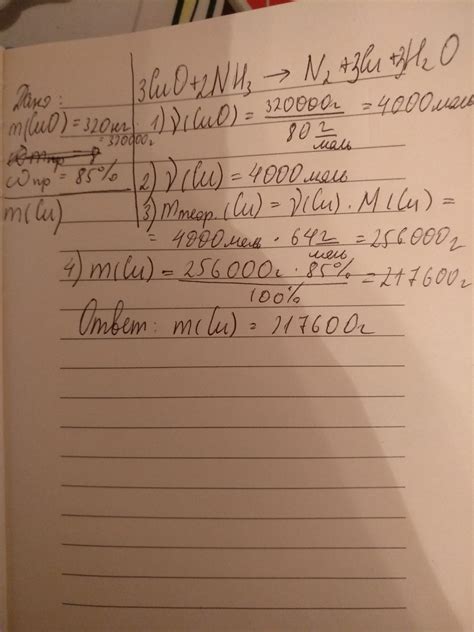 Дано:
m(CuO) = 320кг
= 320000г
ωпр = 85%
m(Cu)
3CuO + 2NH3 → N2 + 3Cu + 3H2O
1) ν(CuO) = 320000г / 80 г/моль = 4000 моль
2) ν(Cu) = 4000 моль
3) mтеор.(Cu) = ν(Cu) · M(Cu) =
= 4000 моль · 64 г/моль = 256000г
4) m(Cu) = 256000г · 85% / 100% = 217600г
Ответ: m(Cu) = 217600г